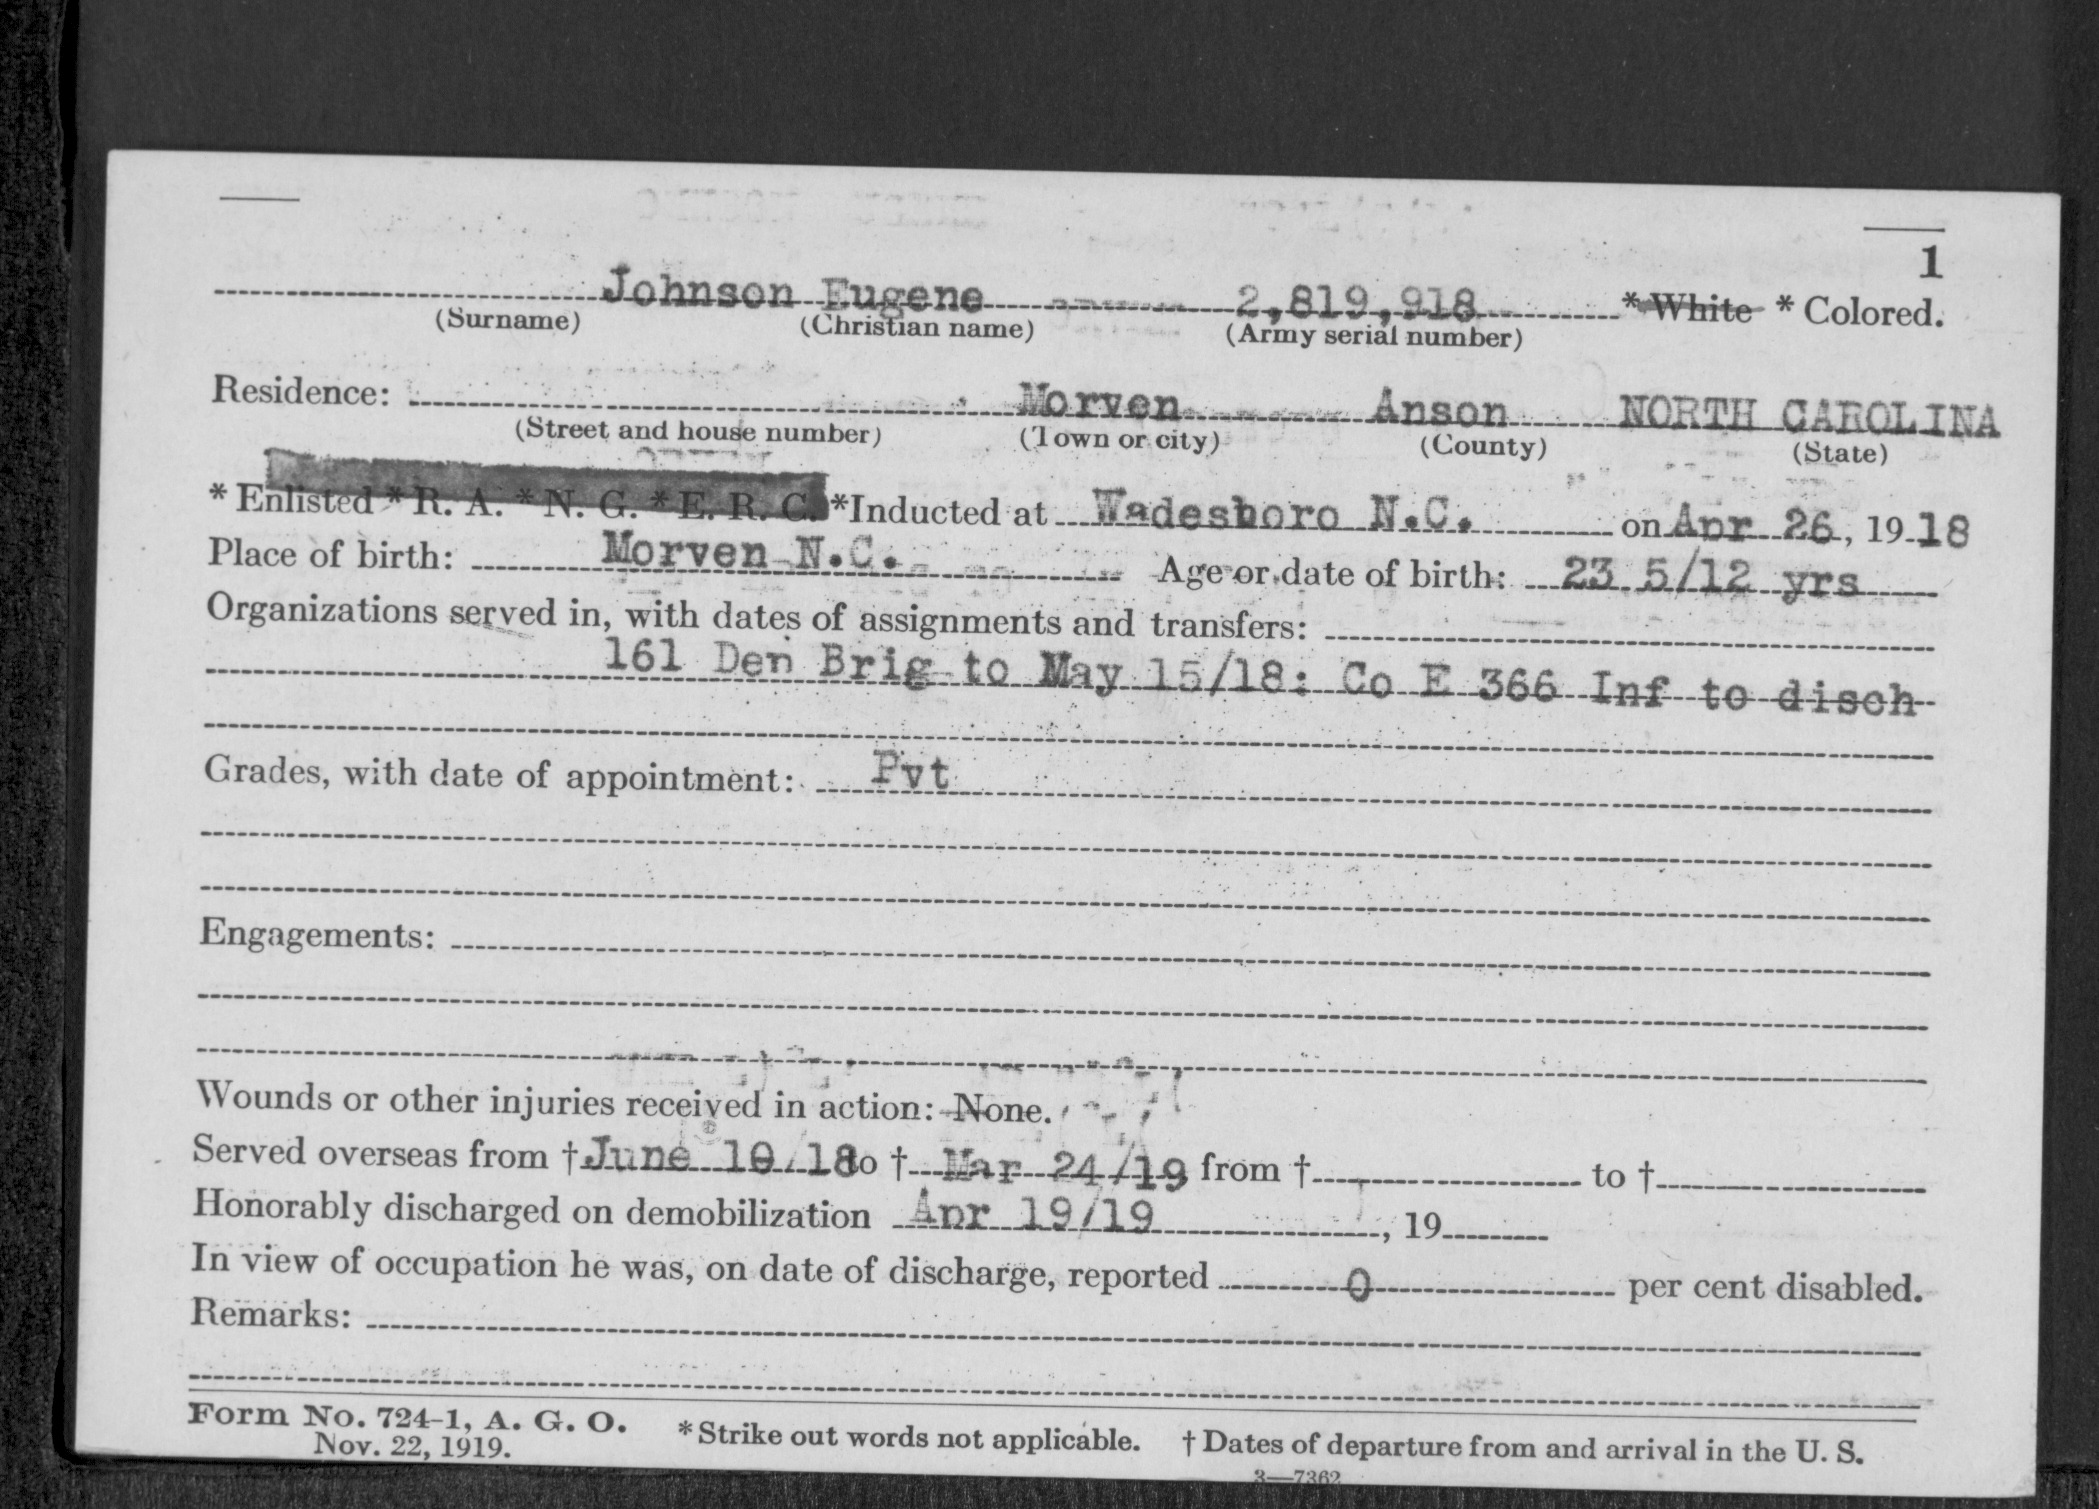 1
Johnson Eugene 2,819,918 * White * Colored.
(Surname) (Christian name) (Army serial number)
Residence: Morven Anson NORTH CAROLINA
(Street and house number) (Town or city) (County) (State)
* Enlisted * R. A. * N. G. * E. R. C. *Inducted at Wadesboro N.C. on Apr 26, 19 18
Place of birth: Morven N.C. Age or date of birth: 23 5/12 yrs
Organizations served in, with dates of assignments and transfers:
161 Dep Brig to May 15/18: Co E 366 Inf to disch
Grades, with date of appointment: Pvt
Engagements:
Wounds or other injuries received in action: None.
Served overseas from † June 10/18 to † Mar 24/19 from † to †
Honorably discharged on demobilization Apr 19/19 , 19
In view of occupation he was, on date of discharge, reported 0 per cent disabled.
Remarks:
Form No. 724-1, A. G. O. *Strike out words not applicable. † Dates of departure from and arrival in the U. S.
Nov. 22, 1919.
3—7362